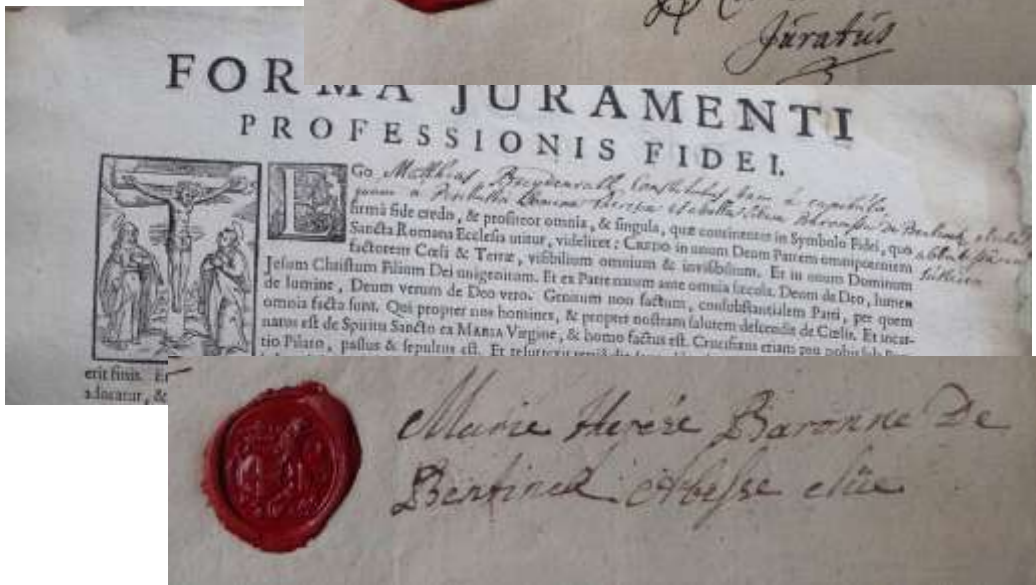 Juratus
FORMA JURAMENTI
PROFESSIONIS FIDEI.
EGo Matthias Breydenralt Constitutus
firmâ fide credo, & profiteor omnia, & singula, quæ continentur in Symbolo Fidei, quo
Sancta Romana Ecclesia utitur, videlicet: CREDO in unum Deum Patrem omnipotentem
factorem Cœli & Terræ, visibilium omnium & invisibilium. Et in unum Dominum
Jesum Christum Filium Dei unigenitum. Et ex Patre natum ante omnia sæcula. Deum de Deo, lumen
de lumine, Deum verum de Deo vero. Genitum non factum, consubstantialem Patri, per quem
omnia facta sunt. Qui propter nos homines, & propter nostram salutem descendit de Cœlis. Et incar-
natus est de Spiritu Sancto ex MARIA Virgine, & homo factus est. Crucifixus etiam pro nobis sub Pon-
tio Pilato, passus & sepultus est. Et resurrexit
erit finis. Et
adoratur, &
Marie Therése Baronne De
Bentinck Abesse elüe